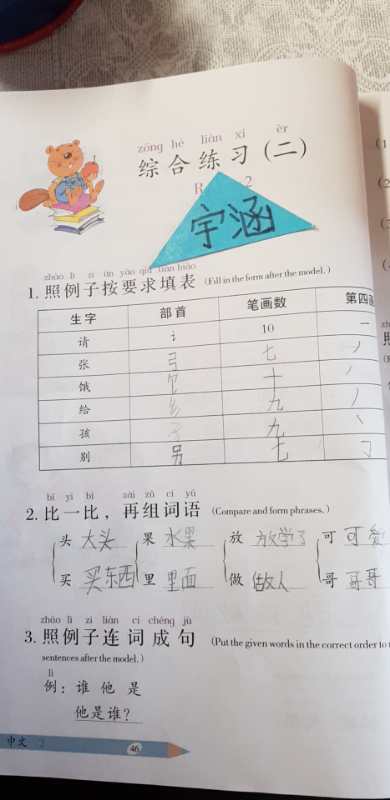 zōng hé liàn xí èr
综合练习(二)
R 2
宇涵
1. 照例子按要求填表 (Fill in the form after the model.)
生字 部首 笔画数 第四
请 讠 10 一
张 弓 七 丿
饿 饣 十 丿
给 纟 九 丿
孩 子 九 丶
别 另 七 𠃌
bǐ yi bǐ zài zǔ cí yǔ
2. 比一比，再组词语 (Compare and form phrases.)
头 大头 果 水果 放 放学了 可 可爱
买 买东西 里 里面 做 做人 哥 哥哥
zhào lì zi lián cí chéng jù
3. 照例子连词成句 (Put the given words in the correct order to
sentences after the model.)
lì
例：谁 他 是
他是谁？
中文 2
46